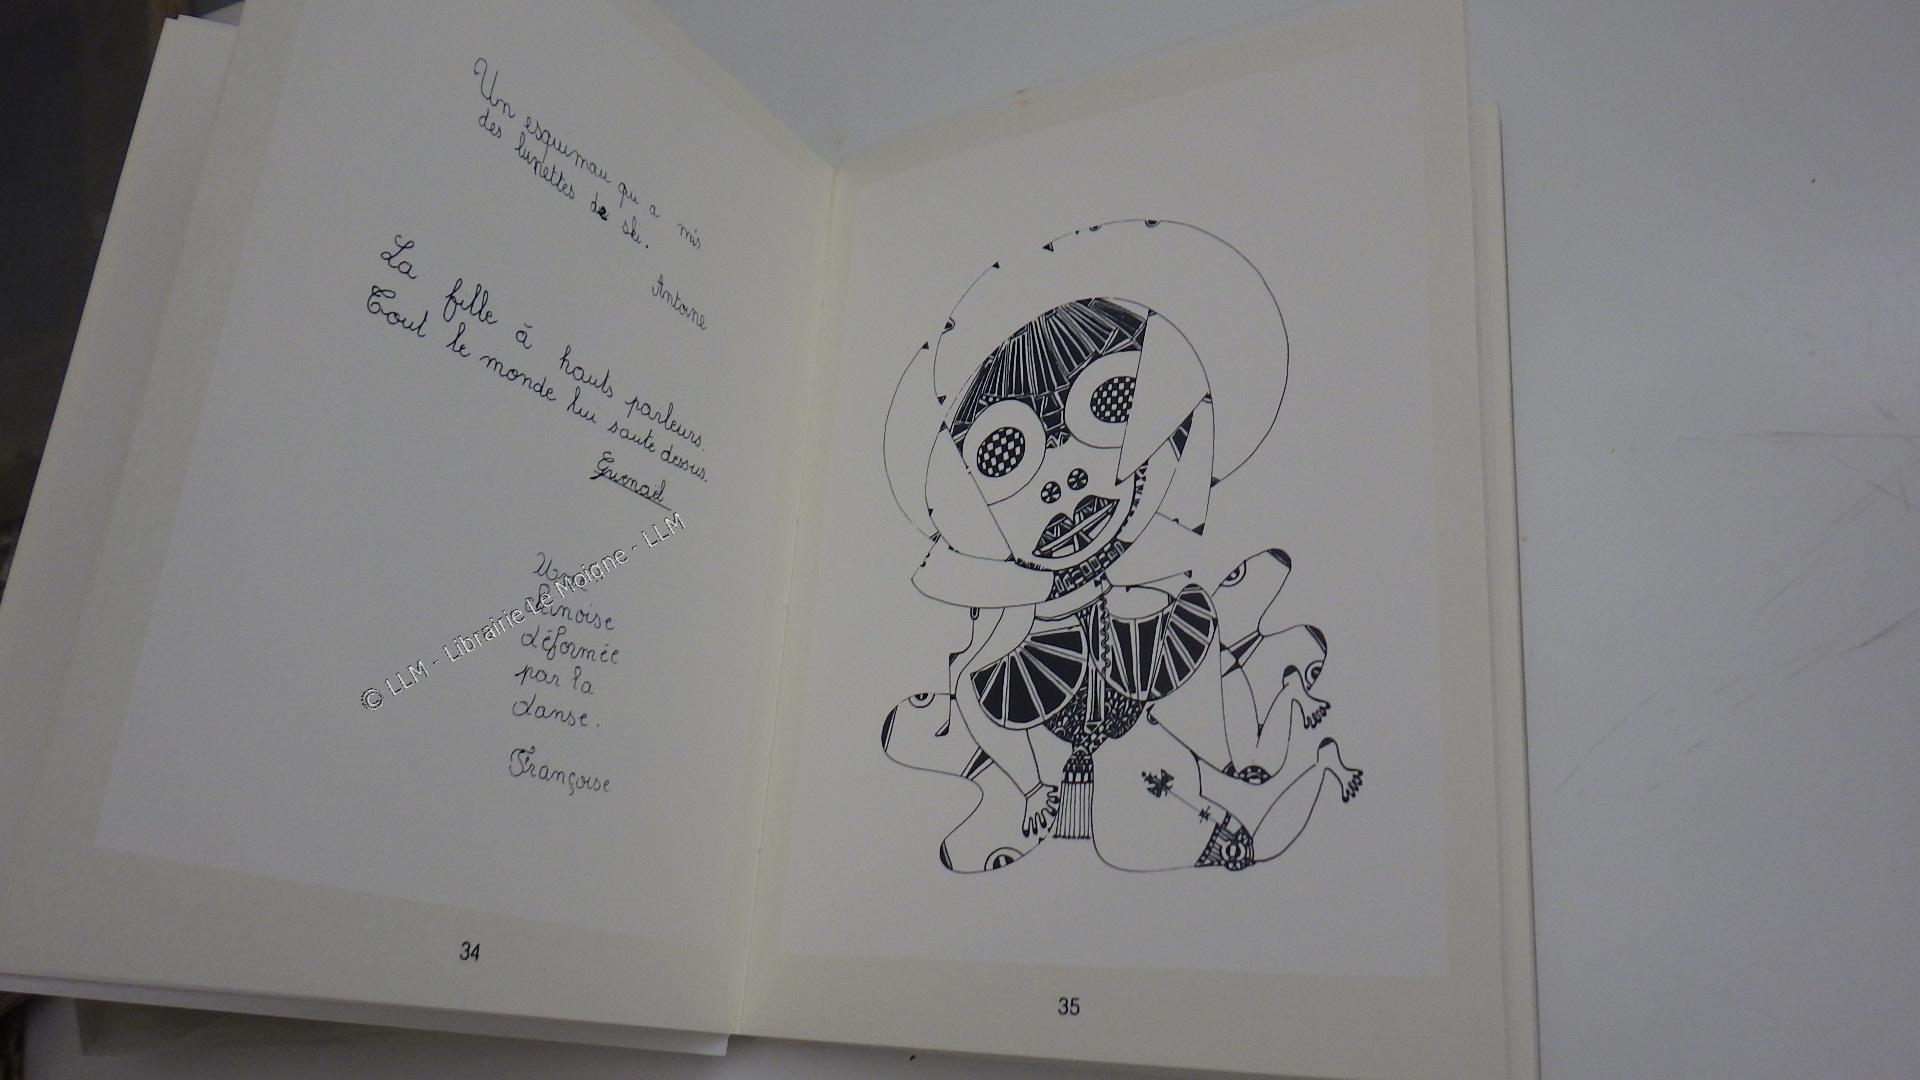 Un esquimau qui a mis
des lunettes de ski.
Antoine
La fille à hauts parleurs.
Tout le monde lui saute dessus.
Guenaël
déformée
par la
danse.
Françoise
© LLM - Librairie Le Moigne - LLM
34
35